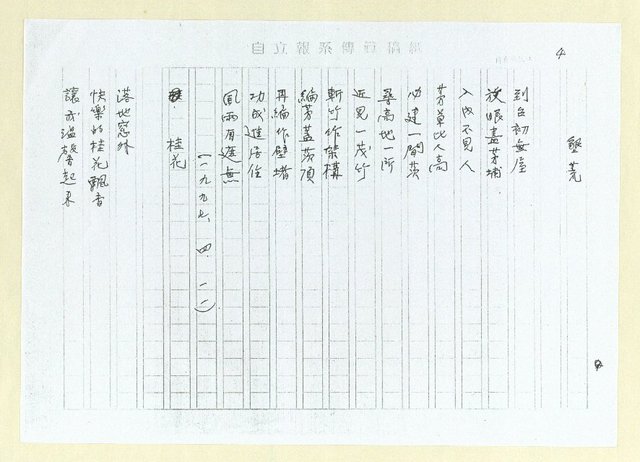 4
自立報系傳真稿紙
墾荒
到台初無屋
放眼盡茅埔
入內不見人
茅草比人高
尋高地一所
近見一茂竹
斬竹作架構
編茅蓋茨頂
再編作壁堵
功成進居住
風雨有遮無
(一九九七、四、一一)
桂花
落地窗外
快樂的桂花飄香
讓我溫馨起來